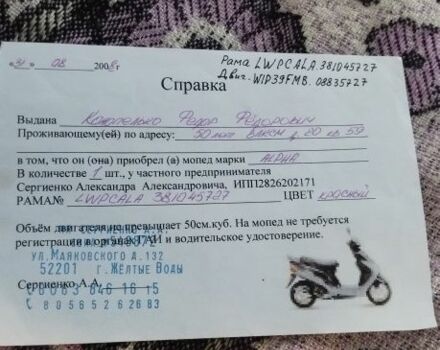 «31» 08 2008г
Рама LWPCALA.381045727
Двиг. W1P39FMB. 08835727
Справка
Выдана Федор Фёдорович
Проживающему(ей) по адресу: 50 лет ВЛКСМ д. 20 кв 59
в том, что он (она) приобрел (а) мопед марки ALPHA
В количестве 1 шт., у частного предпринимателя
Сергиенко Александра Александровича, ИПП2826202171
РАМА№ LWPCALA 381045727 ЦВЕТ КРАСНЫЙ
Объём двигателя не превышает 50см.куб. На мопед не требуется
регистрации в органах ГАИ и водительское удостоверение.
СЕРГИЕНКО А.А.
УЛ.МАЯКОВСКОГО Д.132
52201 г.ЖЁЛТЫЕ ВОДЫ
Сергиенко А.А.
8 063 846 16 15
8 05652 6 26 83